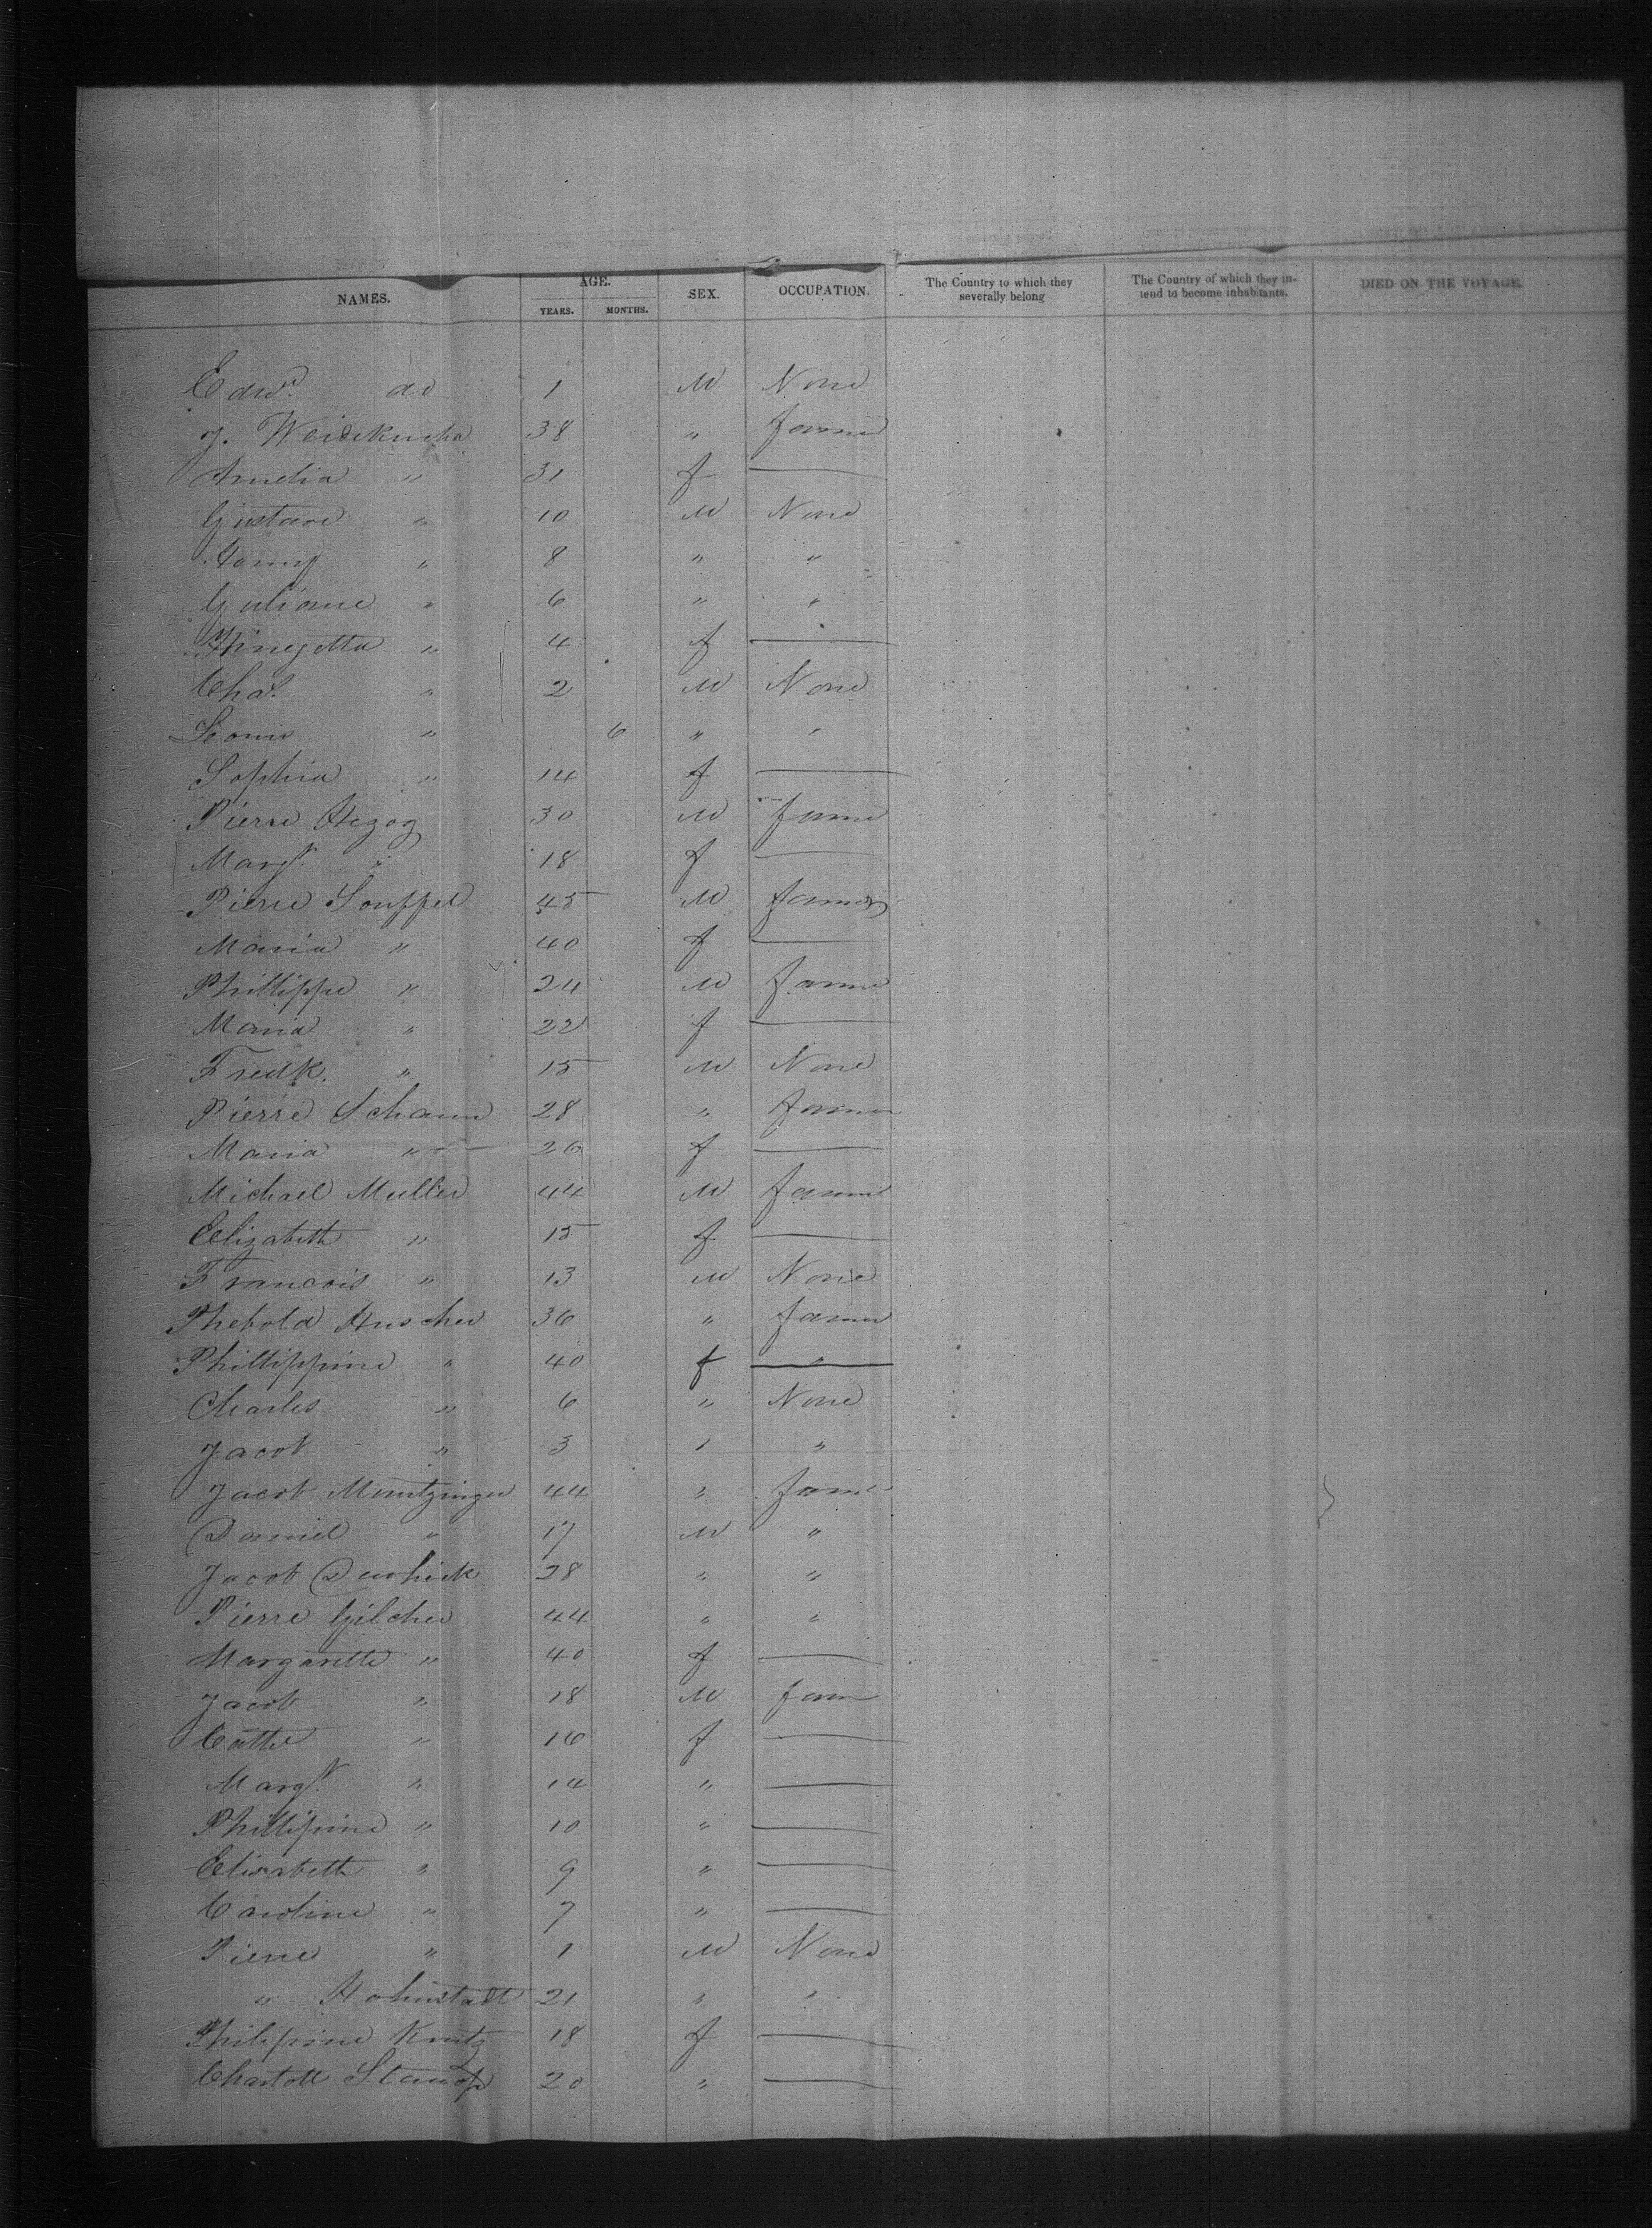 NAMES. AGE. YEARS. MONTHS. SEX. OCCUPATION. The Country to which they severally belong The Country of which they intend to become inhabitants. DIED ON THE VOYAGE.
Edwd. do 1 M None
J. 38 " Farmer
Amelia " 31 f —
Gustave " 10 M None
" 8 " "
Guliane " 6 " "
" 4 f —
Chas. " 2 M None
Louis " 6 " "
Sophia " 14 f —
Pierre Hezog 30 M Farmer
Margt. " 18 f —
Pierre Souffel 45 M Farmer
Maria " 40 f —
Phillippe " 24 M Farmer
Maria " 22 f —
Fredk. " 15 M None
Pierre Schann 28 " Farmer
Maria " 26 f —
Michael Muller 44 M Farmer
Elizabeth " 15 f —
Francois " 13 M None
Thebold Huscher 36 " Farmer
Phillippine " 40 f —
Charles " 6 " None
Jacob " 3 " "
Jacob Muntzinger 44 " Farmer
Daniel " 17 M "
Jacob 28 " "
Pierre Gilcher 44 " "
Margarette " 40 f —
Jacob " 18 M Farm
Cathe " 16 f —
Margt. " 14 " —
Phillipine " 10 " —
Elisabeth " 9 " —
Caroline " 7 " —
Pierre " 1 M None
" Hohnstadt 21 " "
Philipine 18 f —
Charlott 20 " —